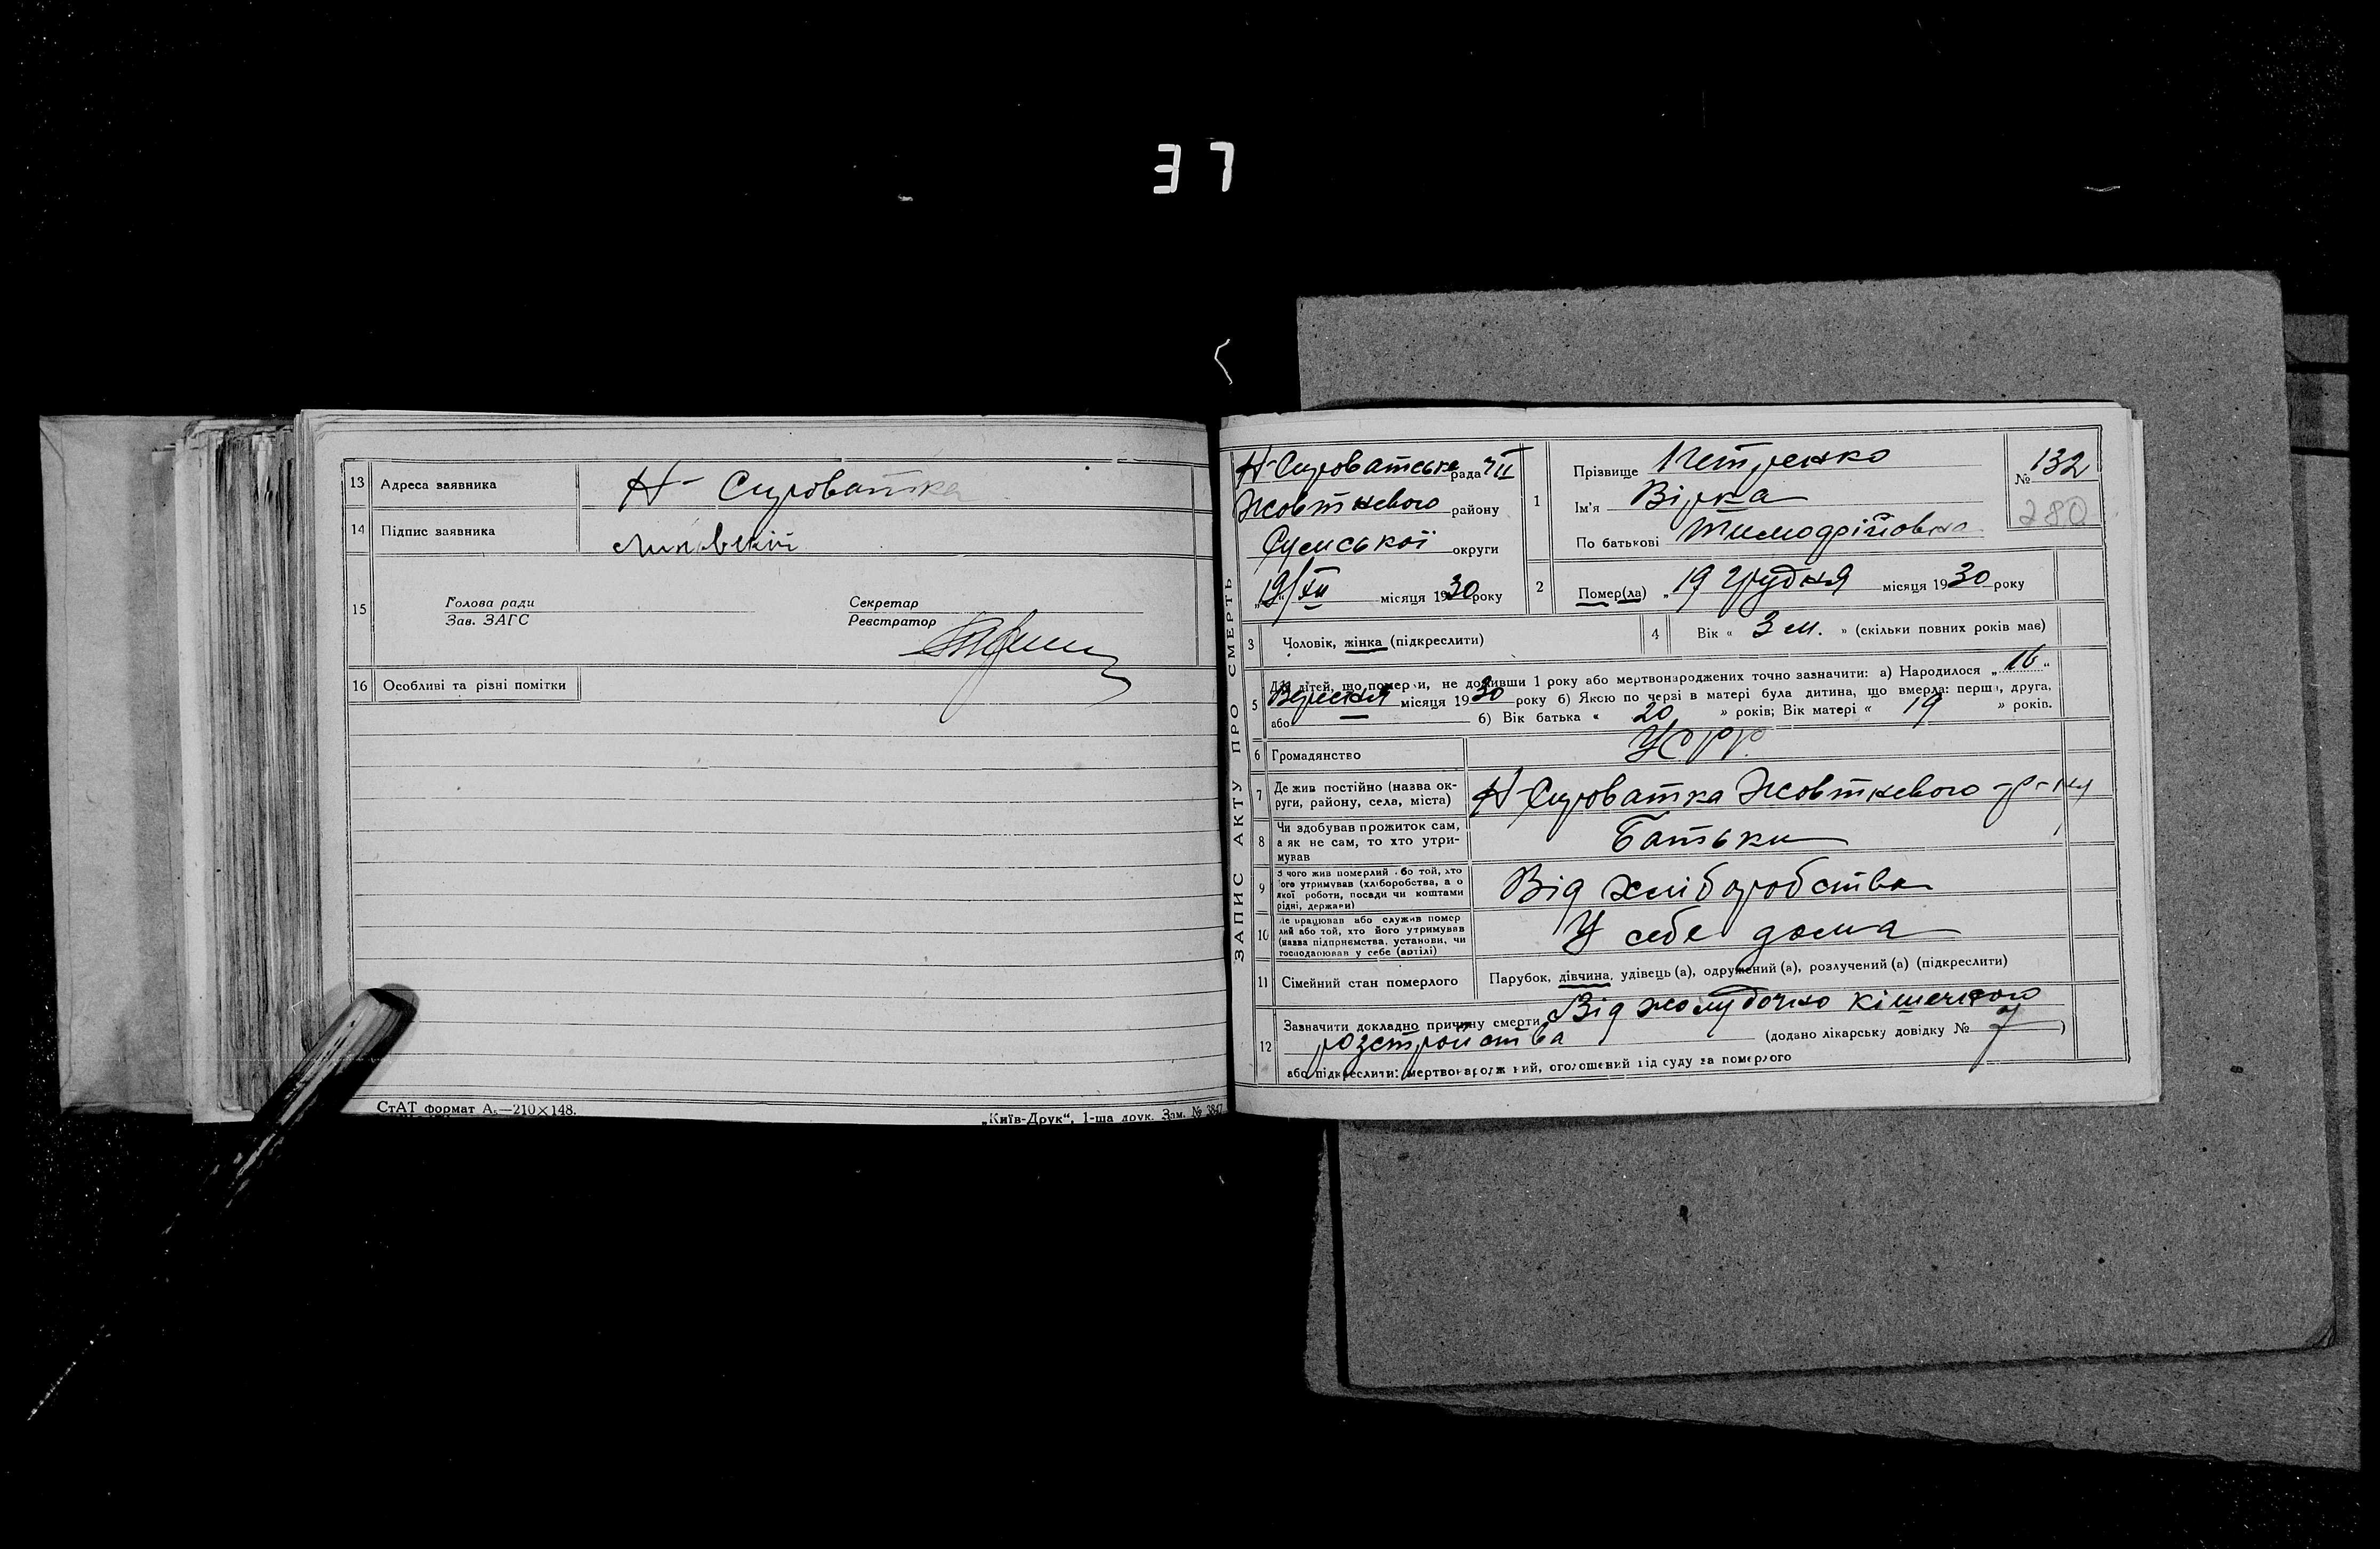 37
13 Адреса заявника Н-Сироватка
14 Підпис заявника
15 Голова ради Секретар
Зав. ЗАГС Реєстратор
16 Особливі та різні помітки
СтАТ формат А₅—210×148.
„Київ-Друк“, 1-ша друк. Зам. № 3847
ЗАПИС АКТУ ПРО СМЕРТЬ
Н-Сироватська рада
Жовтневого району
Сумської округи
„19“/XII місяця 1930 року
1 Прізвище Петренко
Ім'я Вірка
По батькові Тимофійовна
№ 132
280
2 Помер(ла) „19 Грудня місяця 1930 року
3 Чоловік, жінка (підкреслити)
4 Вік « 3 м. » (скільки повних років має)
5 Для дітей, що померли, не доживши 1 року або мертвонароджених точно зазначити: а) Народилося „16“
Вересня місяця 1930 року б) Якою по черзі в матері була дитина, що вмерла: перша, друга,
або б) Вік батька « 20 » років; Вік матері « 19 » років.
6 Громадянство УСРР.
7 Де жив постійно (назва ок-
руги, району, села, міста) Н-Сироватка Жовтневого р-ну
8 Чи здобував прожиток сам,
а як не сам, то хто утри-
мував Батьки
9 З чого жив померлий або той, хто
його утримував (хліборобства, а о
якої роботи, посади чи коштами
рідні, держави) Від хліборобства
10 Де працював або служив помер
лий або той, хто його утримував
(назва підприємства, установи, чи
господарював у себе (артілі) У себе дома
11 Сімейний стан померлого Парубок, дівчина, удівець (а), одружений (а), розлучений (а) (підкреслити)
12 Зазначити докладно причину смерти Від жолудочно кішечного
розстройства (додано лікарську довідку № 7 )
або підкреслити: мертвонароджений, оголошений від суду за померлого